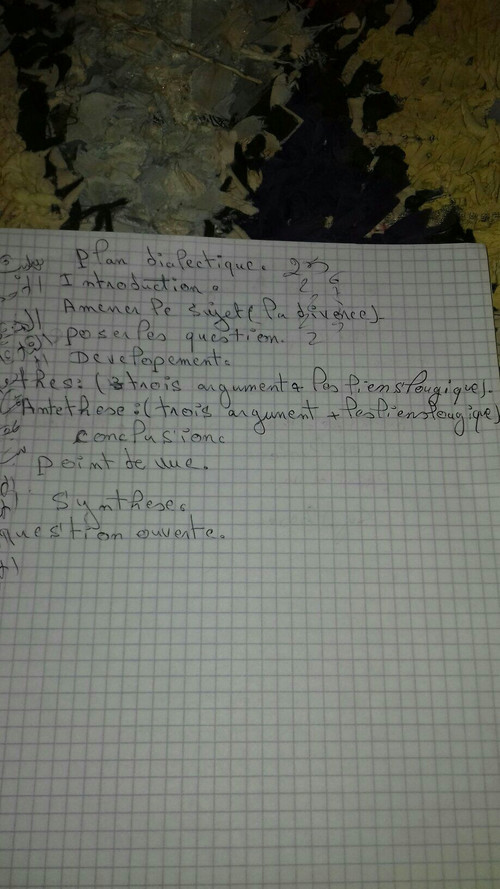 Plan dialectique.
Introduction.
Amener le sujet (la divence).
poser les questiem.
Developement.
thes: (trois argument + les liens lougique).
Antethese: (trois argument + les liens lougique)
conclusion
point de vue.
Synthese.
question ouverte.